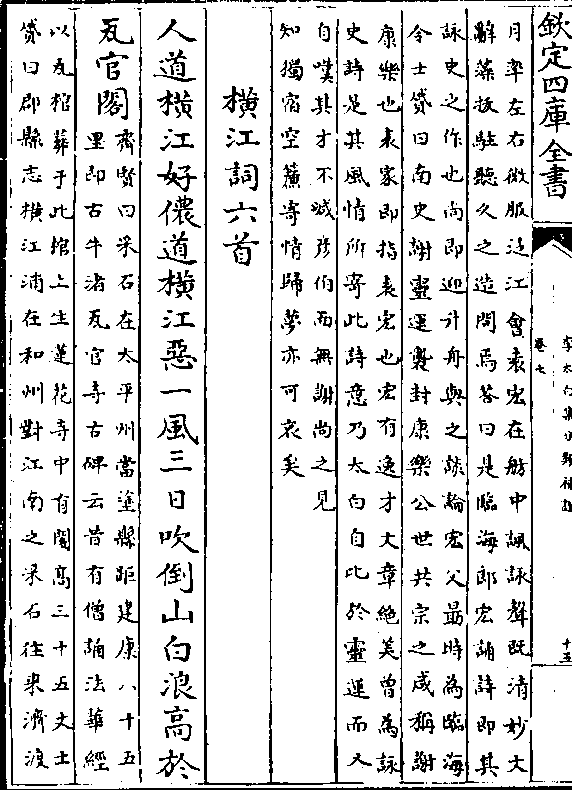 欽定四庫全書
卷七
十五
月率左右微服泛江會袁宏在舫中諷詠聲既清妙文
辭藻拔駐聽久之造問焉荅曰是臨海郎宏誦詩即其
詠史之作也尚即迎升舟與之談論宏父最時為臨海
令士贇曰南史謝靈運襲封康樂公世共宗之咸稱謝
康樂也袁家即指袁宏也宏有逸才文章絶美曾為詠
史詩是其風情所寄此詩意乃太白自比於靈運而又
自嘆其才不減彦伯而無謝尚之見
知獨宿空簾寄情歸夢亦可哀矣
橫江詞六首
人道橫江好儂道橫江惡一風三日吹倒山白浪高於
瓦官閣
齊賢曰采石在太平州當塗縣距建康八十五
里即古牛渚瓦官寺古碑云昔有僧誦法華經
以瓦棺葬于此棺上生蓮花寺中有閣髙三十五丈士
贇曰郡縣志橫江浦在和州對江南之采石往來濟渡